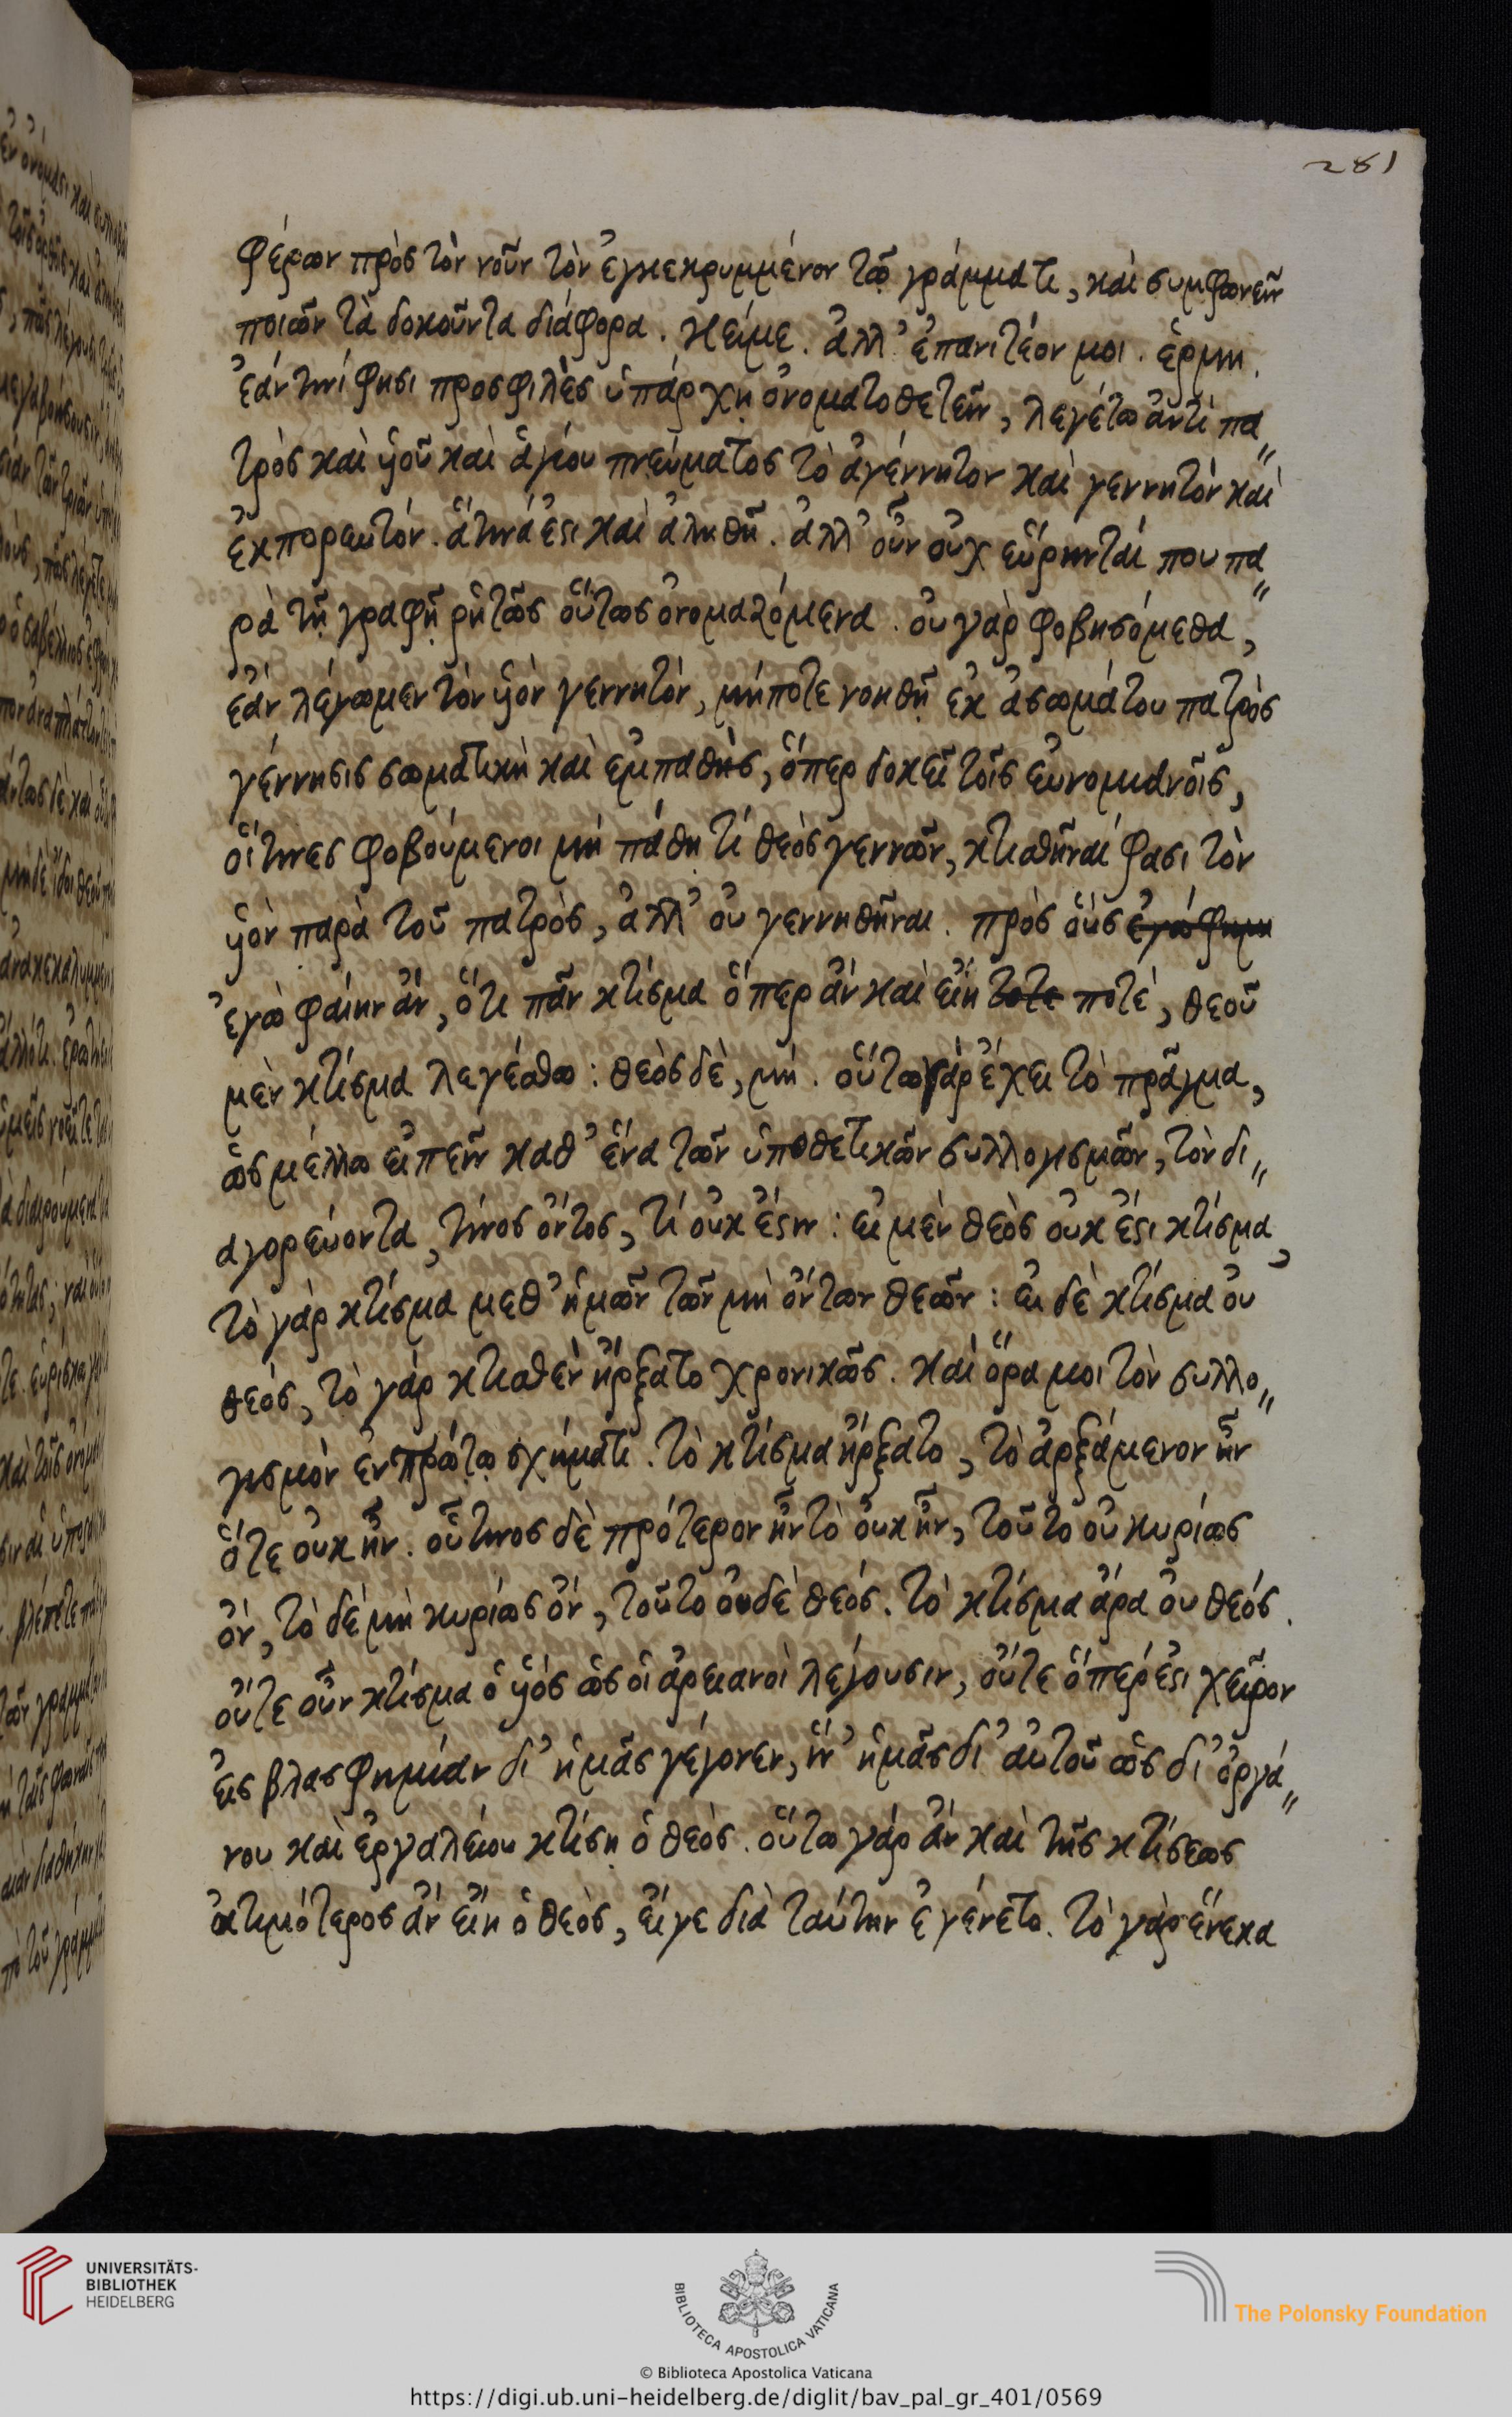 281
φέρων πρὸς τὸν νοῦν τὸν ἐγκεκρυμμένον τῷ γράμματι, καὶ συμφωνεῖν
ποιῶν τὰ δοκοῦντα διάφορα. κεῖμε. ἀλλ' ἐπανιτέον μοι. ἑρμη.
ἐάν τινί φησι προσφιλὲς ὑπάρχῃ ὀνοματοθετεῖν, λεγέτω ἀντὶ πα〃
τρὸς καὶ ὑοῦ καὶ ἁγίου πνεύματος τὸ ἀγέννητον καὶ γεννητὸν καὶ
ἐκπορευτόν. ἅτινά ἐστι καὶ ἀληθῆ. ἀλλ' οὖν οὐχ εὕρηνταί που πα〃
ρὰ τῇ γραφῇ ῥητῶς οὕτως ὀνομαζόμενα. οὐ γὰρ φοβησόμεθα,
ἐὰν λέγωμεν τὸν ὑὸν γεννητὸν, μήποτε νοηθῇ ἐκ ἀσωμάτου πατρὸς
γέννησις σωματικὴ καὶ ἐμπαθὴς, ὅπερ δοκεῖ τοῖς εὐνομιανοῖς,
οἵτινες φοβούμενοι μὴ πάθῃ τί θεὸς γεννῶν, κτισθῆναί φασι τὸν
ὑὸν παρὰ τοῦ πατρὸς, ἀλλ' οὐ γεννηθῆναι. πρὸς οὓς ἐγώ φημι
ἐγὼ φαίην ἂν, ὅτι πᾶν κτίσμα ὅπερ ἂν καὶ εἴη τοτε ποτέ, θεοῦ
μὲν κτίσμα λεγέσθω: θεὸς δὲ, μή. οὕτω γάρ ἔχει τὸ πρᾶγμα,
ὡς μέλλω εἰπεῖν καθ' ἕνα τῶν ὑποθετικῶν συλλογισμῶν, τὸν δι〃
αγορεύοντα, τίνος ὄντος, τί οὐκ ἔστιν: εἰ μὲν θεὸς οὐκ ἔστι κτίσμα,
τὸ γὰρ κτίσμα μεθ' ἡμῶν τῶν μὴ ὄντων θεῶν: εἰ δὲ κτίσμα οὐ
θεός, τὸ γὰρ κτισθὲν ἤρξατο χρονικῶς. καὶ ὅρα μοι τὸν συλλο〃
γισμὸν ἐν πρώτῳ σχήματι. τὸ κτίσμα ἤρξατο, τὸ ἀρξάμενον ἦν
ὅτε οὐκ ἦν. οὗτινος δὲ πρότερον ἦν τὸ οὐκ ἦν, τοῦτο οὐ κυρίως
ὂν, τὸ δὲ μὴ κυρίως ὂν, τοῦτο οὐδὲ θεός. τὸ κτίσμα ἄρα οὐ θεός.
οὔτε οὖν κτίσμα ὁ ὑὸς ὡς οἱ ἀρειανοὶ λέγουσιν, οὔτε ὅπερ ἐστι χεῖρον
εἰς βλασφημίαν δι' ἡμᾶς γέγονεν, ἵν' ἡμᾶς δι' αὐτοῦ ὡς δι' ὀργά〃
νου καὶ ἐργαλείου κτίσῃ ὁ θεὸς. οὕτω γὰρ ἂν καὶ τῆς κτίσεως
ἀτιμότερος ἂν εἴη ὁ θεὸς, εἴγε διὰ ταύτην ἐγένετο. τὸ γὰρ ἕνεκα
UNIVERSITÄTS-
BIBLIOTHEK
HEIDELBERG
BIBLIOTECA APOSTOLICA VATICANA
The Polonsky Foundation
© Biblioteca Apostolica Vaticana
https://digi.ub.uni-heidelberg.de/diglit/bav_pal_gr_401/0569